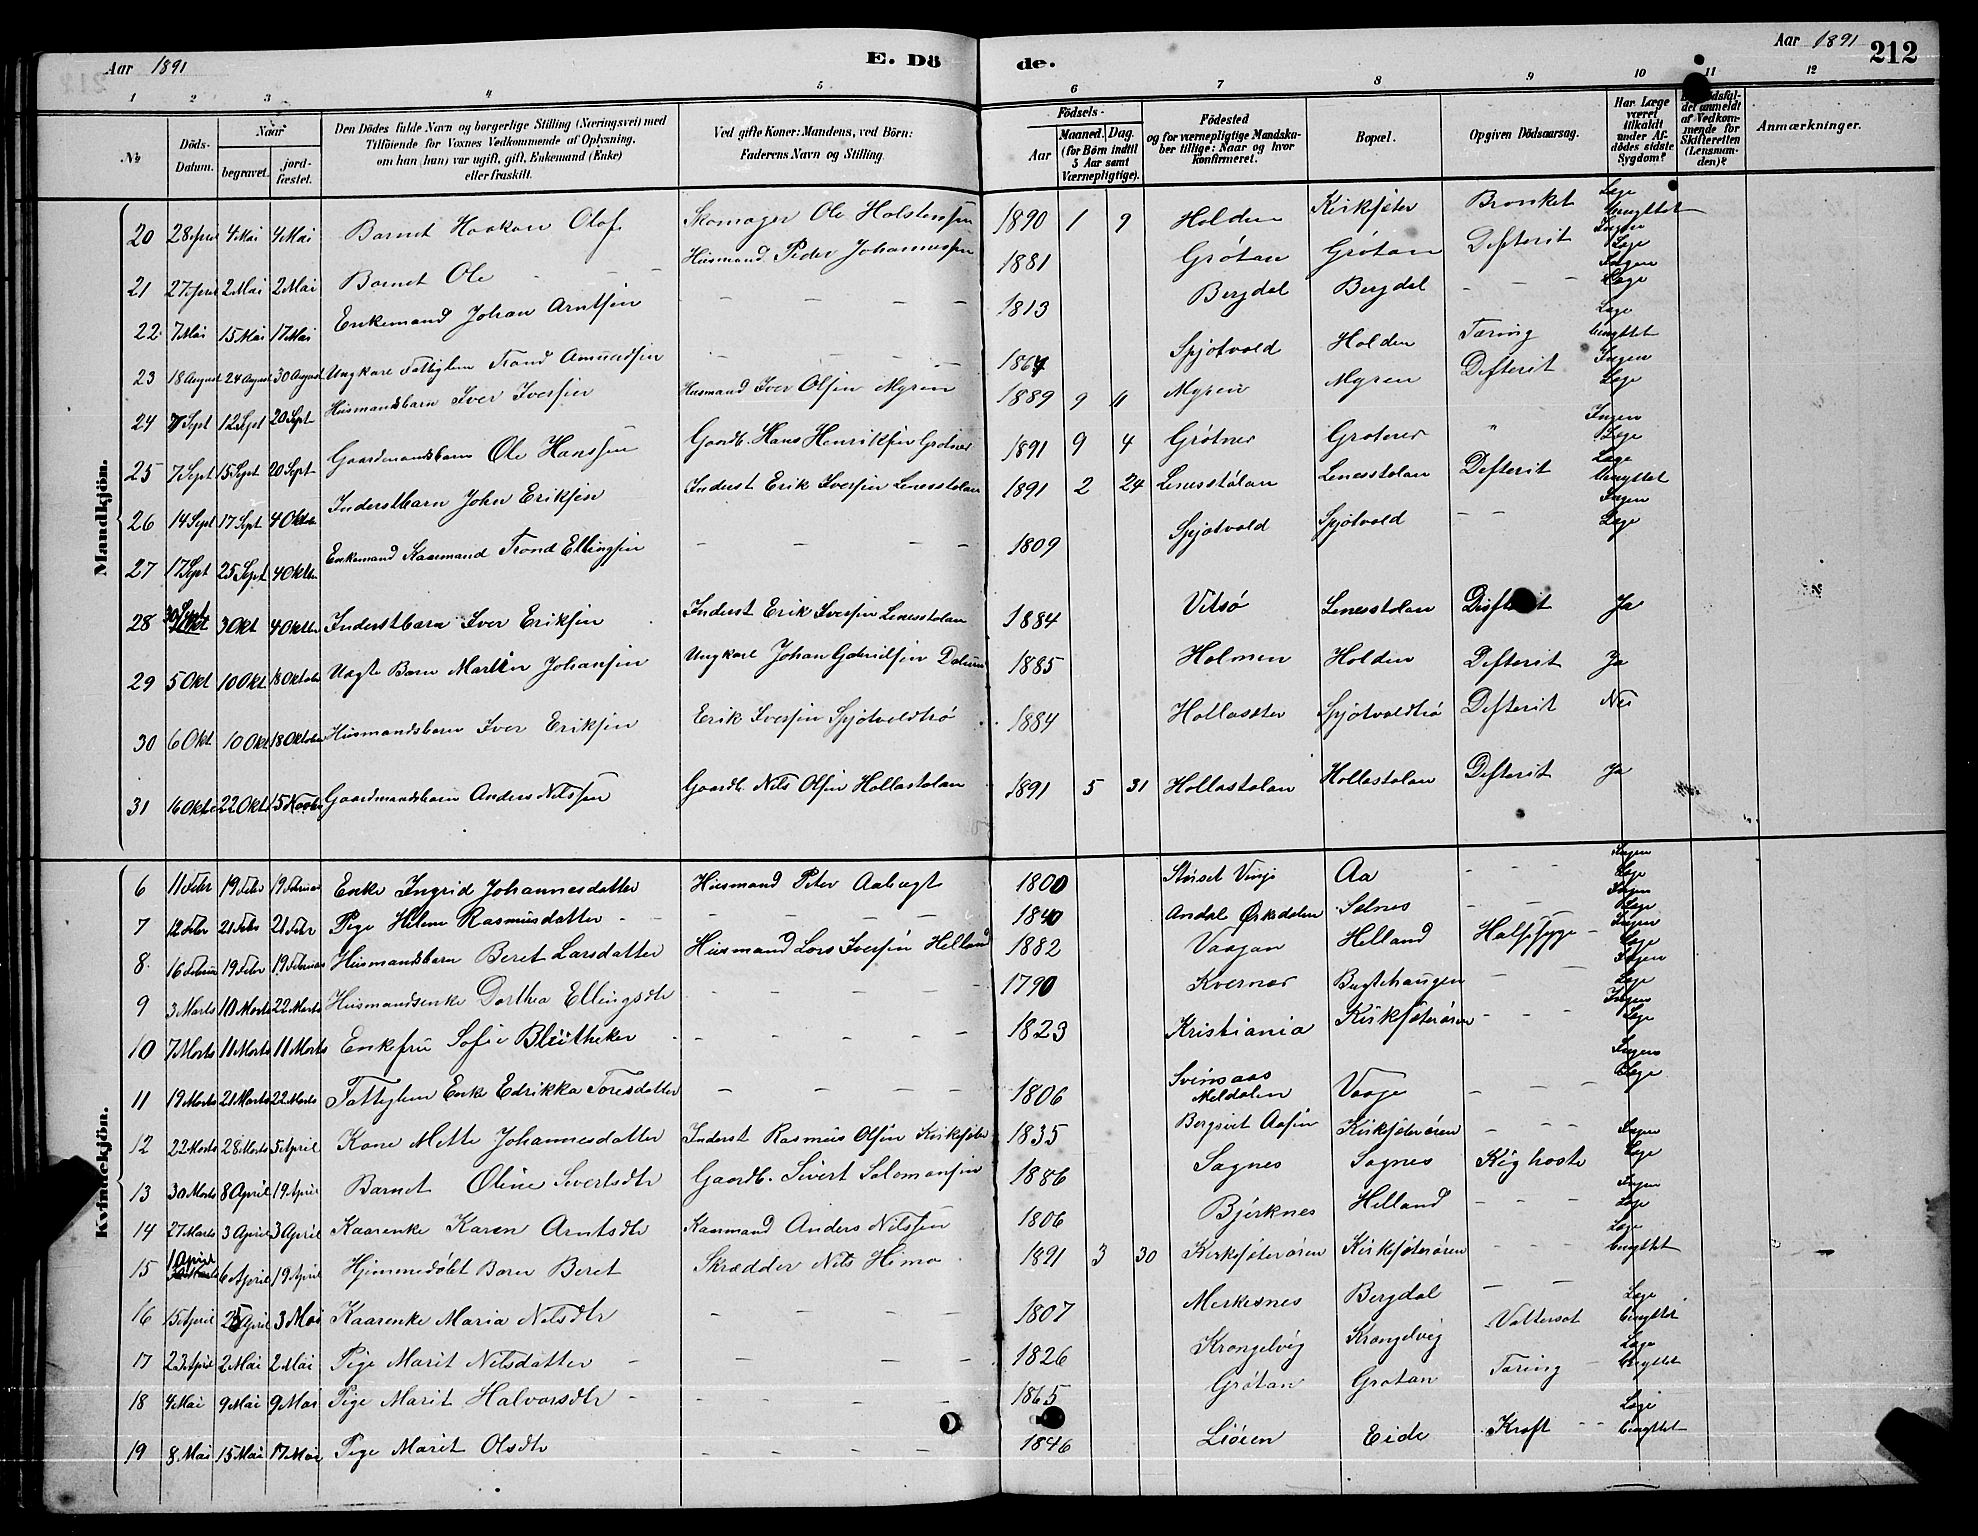 Aar 1891
E. Dö
de.
Aar 1891
212
1 2 3 4 5 6 7 8 9 10 11 12
No
Döds-Datum.
Naar
begravet.
jord-fæstet.
Den Dödes fulde Navn og borgerlige Stilling (Næringsvei) med
Tilföiende for Voxnes Vedkommende af Oplysning,
om han (hun) var ugift, gift, Enkemand (Enke)
eller fraskilt.
Ved gifte Koner: Mandens, ved Börn:
Faderens Navn og Stilling.
Födsels-
Aar
Maaned. Dag.
(for Börn indtil
5 Aar samt
Værnepligtige).
Födested
og for værnepligtige Mandska-
ber tillige: Naar og hvor
konfirmeret.
Bopæl.
Opgiven Dödsaarsag.
Har Læge
været
tilkaldt
under Af-
dödes sidste
Sygdom?
det anmeldt
af Vedkom-
mende for
Skifteretten
(Lensman-
den)?
Anmærkninger.
Mandkjön.
20 4 Mai 4 Mai Barnet Haakon Olaf Skomager Ole Holstensen 1890 1 9 Holden Kirksæter Bronket Læge benyttet
21 2 Mai 2 Mai Barnet Ole - - - Husmand Peder Johannessen 1881 Grótan Grótan Defterit Ingen Læge
22 7 Mai 15 Mai 17 Mai Enkemand Johan Arntsen - - - - 1813 Bergdal Bergdal - - - Ingen Læge
23 18 August 24 August 30 August Ungkare Fattiglem Trond Amundsen - - - 1864 Spjotvold Holden Tæring Læge benyttet
24 7 Sept 12 Sept 20 Sept Husmandsbarn Iver Iversen Husmand Iver Olsen Myren 1889 9 11 Myren Myren Defterit Ingen Læge
25 7 Sept 15 Sept 20 Sept Gaardmandsbarn Ole Hanssen Gaardb. Hans Henriksen Grótnes 1891 9 4 Grótnes Grotnes " Ingen Læge
26 14 Sept 17 Sept 4 Okt Inderstbarn John Eriksen Inderst Erik Iversen Lenesstolan 1891 2 24 Lenesstólan Lenesstolan Defterit Læge benyttet
27 17 Sept 25 Sept 4 Oktbr Enkemand Kaarmand Trond Ellingsen - - - - 1809 Spjotvold Spjotvold - - Ingen Læge
28 30 Sept 3 Okt 4 Oktbr Inderstbarn Iver Eriksen Inderst Erik Iversen Lenesstolan 1884 Vitsø Lenesstolan Ja
29 5 Okt 10 Okt 18 Oktober Uægte Barn Martin Johansen Ungkarl Johan Gabrielsen 1885 Holmen Holden Defterit Ja
30 6 Okt 10 Okt 18 Oktober Husmandsbarn Iver Eriksen Erik Iversen Spjotvoldtrø 1884 Hollasæter Spjotvoldtrø Defterit Nei
31 16 Oktr 22 Okt 15 Novbr Gaardmandsbarn Anders Nilssen Gaardb. Nils Olsen Hollastolan 1891 5 31 Hollastolan Hollastolan Defterit Ja
Kvindekjön.
6 11 Febr 19 Febr 19 Februar Enke Ingrid Johannesdatter Husmand Peter Aabugt 1800 Storset Vinje Aa - - - Ingen Læge
7 12 Febr 21 Febr 21 Febr Pige Helene Rasmusdatter - - - - 1840 Andal Ørkdalen Solnes - - - Ingen Læge
8 16 Februar 19 Febr 19 Februar Husmandsbarn Beret Larsdatter Husmand Lars Iversen Helland 1882 Vaagan Helland Halssyge - Ingen Læge
9 3 Marts 10 Marts 22 Marts Husmandsenke Dorthea Ellingsdtr - - - - 1790 Kvernar Bugtehaugen - - Ingen Læge
10 7 Marts 11 Marts 11 Marts Enkefru Sofie - - - - 1823 Kristiania Kirksæterøren - - - Ingen Læge
11 19 Marts 21 Marts 22 Marts Fattiglem Enke Edrikka Toresdatter - - - - 1806 Svinsaas Meldalen Vaage - - - Ingen Læge
12 22 Marts 28 Marts 5 April Kone Mette Johannesdatter Inderst Rasmus Olsen Kirksæter 1835 Kirksæterøren - - - Ingen
13 30 Marts 8 April 19 April Barnet Oline Sivertsdtr Gaardb. Sivert Salomonsen 1886 Sagnes Sagnes Kighoste Læge
14 27 Marts 3 April 3 April Kaarenke Karen Arntsdtr Kaarmand Anders Nilssen 1806 Bjerknes Helland - - - Ingen Læge
15 1 April 6 April 19 April Hjemmedøbt Barn Beret Skrædder Nils Hemo 1891 3 30 Kirksæterøren Kirksæterøren - - - Læge benyttet
16 15 April 25 April 3 Mai Kaarenke Maria Nilsdtr - - - - 1807 Merkesnes Bergdal - - Læge benyttet
17 23 April 2 Mai 2 Mai Pige Marit Nilsdatter - - - - 1826 Krongelvig Krongelvig Vattersot Læge benyttet
18 4 Mai 9 Mai 9 Mai Pige Marit Halvorsdtr - - - - 1865 Grótan Grotan Tæring - Læge
19 8 Mai 15 Mai 17 Mai Pige Marit Olsdtr - - - - 1846 Lióien Eide Kræft - - benyttet